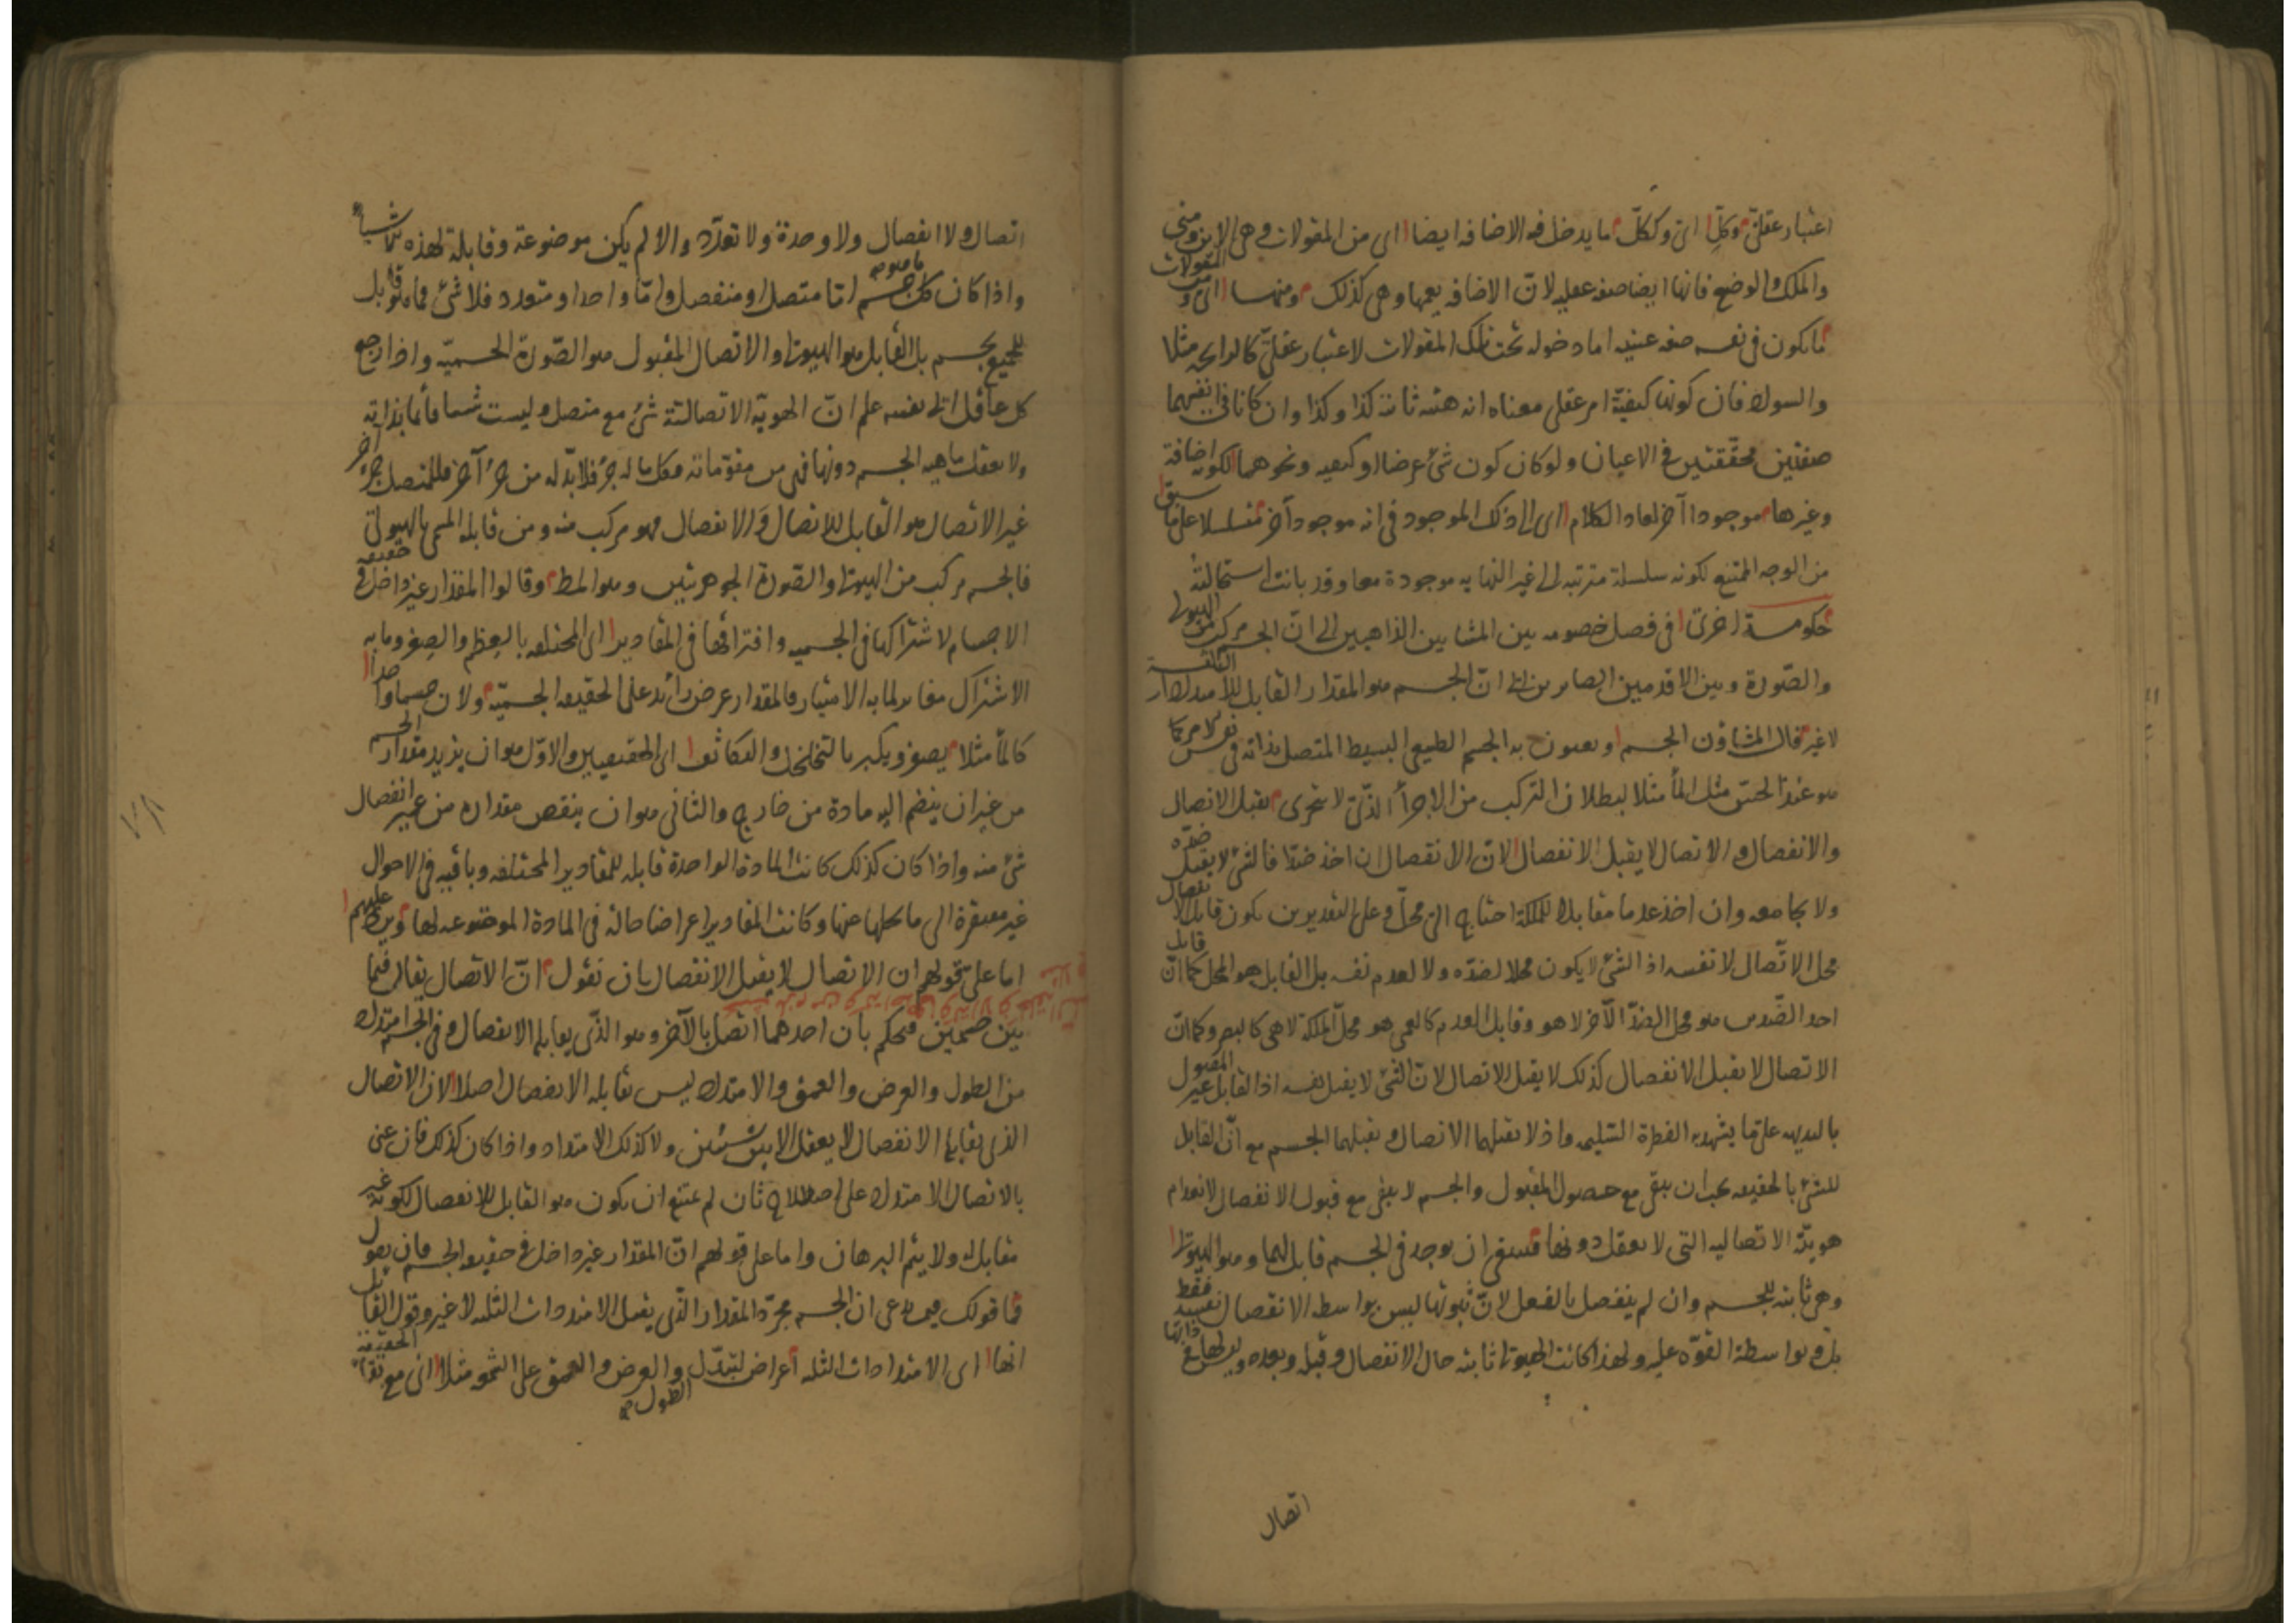 اعتبار عقلىّ وكلّ اى وككلّ ما يدخل فيه الاضافه ايضا اى من المقولات وهى الاين ومتى
والملك والوضع فانها ايضا صفه عقليه لانّ الاضافه يعمها وهى كذلك ومنها اى ومن المقولات
ما يكون فى نفسه صفه عينيه اما دخوله تحت تلك المقولات لاعتبار عقلىّ كالرايحه مثلا
والسواد فان كونها كيفيّة امر عقلى معناه انه هيئه ثابتة كذا وكذا وان كانا فى انفسهما
صفتين محققتين فى الاعيان ولو كان كون شئ عرضا او كيفيه ونحوهما ككونه اضافة
وغيرها موجودا آخر لعاد الكلام اى الى ذلك الموجود فى انه موجود آخر متسلسلا على ما سبق
من الوجه الممتنع لكونه سلسلة مترتبه الى غير النهايه موجودة معا وقد بانت استحالته
حكومة اخرى فى فصل خصومه بين المشايين الذاهبين الى انّ الجسم مركب من الهيولى
والصّورة وبين الاقدمين الصايرين الى انّ الجسم هو المقدار القابل للامتدادات الثلثة
لا غير قال المشاؤن الجسم ويعنون به الجسم الطبيعى البسيط المتصل بذاته فى نفس الامر كما
هو عند الحسّ مثل الماء مثلا لبطلان التركب من الاجزاء الّذى لا تتجزى يقبل الاتصال
والانفصال والاتصال لا يقبل الانفصال لانّ الانفصال ان اخذ ضدّا فالشئ لا يقبل ضدّه
ولا يجامعه وان اخذ عدما مقابلا للملكة احتاج الى محلّ وعلى التقديرين يكون قابل الانفصال
محل الاتّصال لا نفسه اذ الشئ لا يكون محلا لضدّه ولا لعدم نفسه بل القابل هو المحل كما انّ قابل
احد الضّدين هو محل الضدّ الآخر لا هو وقابل العدم كالعمى هو محلّ الملكة لا هى كالبصر وكما انّ
الاتصال لا يقبل الانفصال كذلك لا يقبل الاتصال لانّ الشئ لا يقبل نفسه اذ القابل غير المقبول
بالبديهه على ما يشهد به الفطرة السّليمه واذ لا يقبلهما الاتصال ويقبلهما الجسم مع انّ القابل
للشئ بالحقيقه يجب ان يبقى مع حصول المقبول والجسم لا يبقى مع قبول الانفصال لانعدام
هويّته الاتصاليه التى لا يعقل دونها فينبغى ان يوجد فى الجسم قابل لهما وهو الهيولى
وهى ثابته للجسم وان لم ينفصل بالفعل لانّ ثبوتها ليس بواسطة الانفصال نفسه فقط
بل وبواسطة القوّه عليه ولهذا كانت الهيولى ثابته حال الانفصال وقبله وبعده وليس لها فى ذاتها
اتصال
اتصال ولا انفصال ولا وحدة ولا تعدّد والا لم يكن موضوعة وقابلة لهذه الاشياء
واذا كان كل جسم اما متصل او منفصل وامّا واحد او متعدد فلا شئ مما هو قابل
للجميع بجسم بل القابل هو الهيولى والاتصال المقبول هو الصّورة الجسميّه واذا رجع
كل عاقل الى نفسه علم انّ الهوية الاتصاليّة شئ مع متصل وليست شيئا قائما بذاته
ولا يعقل ماهيه الجسم دونها فهى من مقوّماته وكل ما له جزء فلا بدّ له من جزء آخر فللمتصل جزء آخر
غير الاتصال هو القابل للاتصال والانفصال فهو مركب منه ومن قابله المسمى بالهيولى
فالجسم مركب من الهيولى والصّورة الجوهرتين وهو المط وقالوا المقدار غير داخل فى حقيقه
الاجسام لاشتراكها فى الجسميه وافتراقها فى المقادير اى المختلفه بالعظم والصغر وما به
الاشتراك مغاير لما به الامتياز فالمقدار عرض زائد على الحقيقه الجسميّه ولان جسما واحدا
كالماء مثلا يصغر ويكبر بالتخلخل والتكاثف اى الحقيقيين والاوّل هو ان يزيد مقدار الجسم
من غير ان ينضم اليه مادة من خارج والثانى هو ان ينقص مقداره من غير انفصال
شئ منه واذا كان كذلك كانت المادة الواحدة قابله للمقادير المختلفه وباقيه فى الاحوال
غير مفتقرة الى ما يحلها عنها وكانت المقادير اعراضا حالة فى المادة الموضوعه لها ويرد عليهم
اما على قولهم ان الاتصال لا يقبل الانفصال بان نقول انّ الاتصال يقال فيما
بين جسمين فيحكم بان احدهما اتصل بالآخر وهو الّذى يقابله الانفصال وفى الجسم امتداد
من الطول والعرض والعمق والامتداد ليس يقابله الانفصال اصلا لان الاتصال
الذى يقابله الانفصال لا يعقل الا بين شيئين ولا كذلك الامتداد واذا كان كذلك فان عنى
بالاتصال الامتداد على اصطلاح ثان لم يمتنع ان يكون هو القابل للانفصال لكونه غير
مقابل له ولا يتم البرهان واما على قولهم انّ المقدار غير داخل فى حقيقه الجسم فان يقول
فما قولك فيمن يدعى ان الجسم مجرّد المقدار الّذى يقبل الامتدادات الثلثه لا غير وقول القائل
انها اى الامتدادات الثلثه اعراض لتبدّل الطول والعرض والعمق على الشمعه مثلا اى مع بقاء الحقيقة